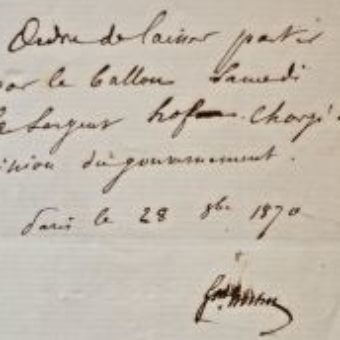 Ordre de laisser partir
par le ballon Samedi
le Sergent hoff Chargé
mission du gouvernement.
Paris le 28 8bre 1870